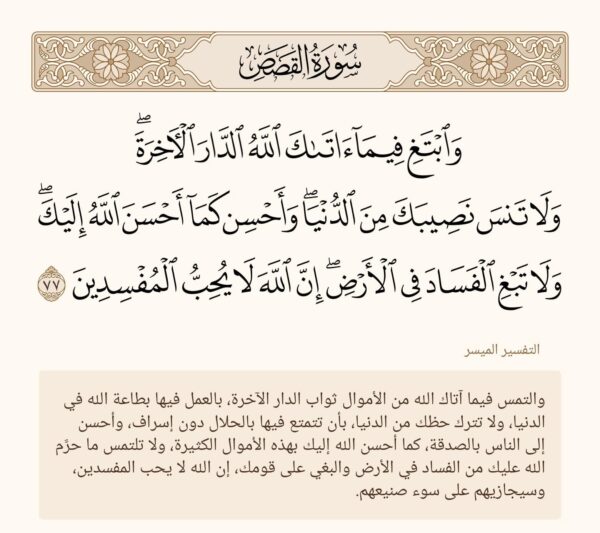 سُورَةُ القَصَصِ
وَٱبْتَغِ فِيمَآ ءَاتَىٰكَ ٱللَّهُ ٱلدَّارَ ٱلْـَٔاخِرَةَ ۖ
وَلَا تَنسَ نَصِيبَكَ مِنَ ٱلدُّنْيَا ۖ وَأَحْسِن كَمَآ أَحْسَنَ ٱللَّهُ إِلَيْكَ ۖ
وَلَا تَبْغِ ٱلْفَسَادَ فِى ٱلْأَرْضِ ۖ إِنَّ ٱللَّهَ لَا يُحِبُّ ٱلْمُفْسِدِينَ ٧٧
التفسير الميسر
والتمس فيما آتاك الله من الأموال ثواب الدار الآخرة، بالعمل فيها بطاعة الله في
الدنيا، ولا تترك حظك من الدنيا، بأن تتمتع فيها بالحلال دون إسراف، وأحسن
إلى الناس بالصدقة، كما أحسن الله إليك بهذه الأموال الكثيرة، ولا تلتمس ما حرَّم
الله عليك من الفساد في الأرض والبغي على قومك، إن الله لا يحب المفسدين،
وسيجازيهم على سوء صنيعهم.